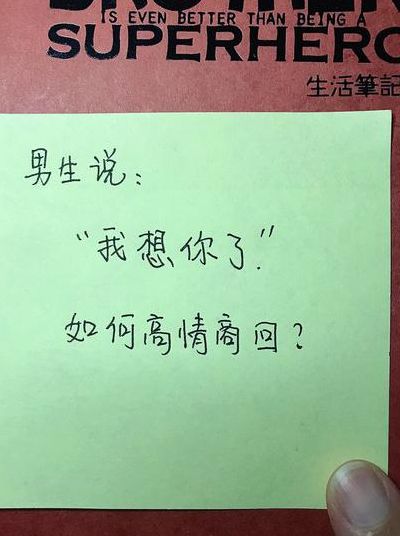 IS EVEN BETTER THAN BEING A
SUPERHERO
生活筆記
男生说：
“我想你了.”
如何高情商回？